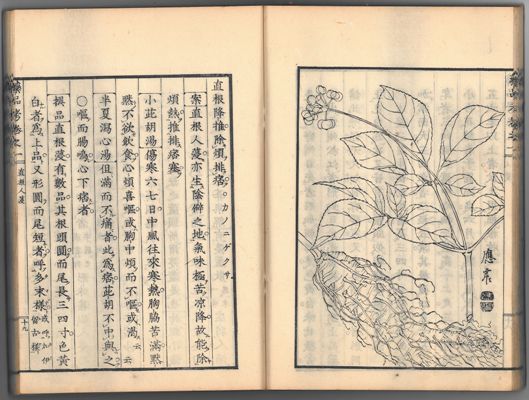 應需
直根降推除煩排痞。カノニゲクサ
案直根人蓡亦生陰僻之地氣味極苦凉降故能除
煩熱推排痞塞
小茈胡湯傷寒六七日中風往來寒熱胸脇苦滿黙
黙不欲飲食心煩喜嘔或胸中煩而不嘔或渴云云
半夏瀉心湯但滿而不痛者此爲痞茈胡不中與之
○嘔而腸鳴心下痞者
撰品直根蓡有數品其根頭圓而尾長三四寸色黄
白者爲上品又形圓而尾短者呼多末様
直根人蓡
十九